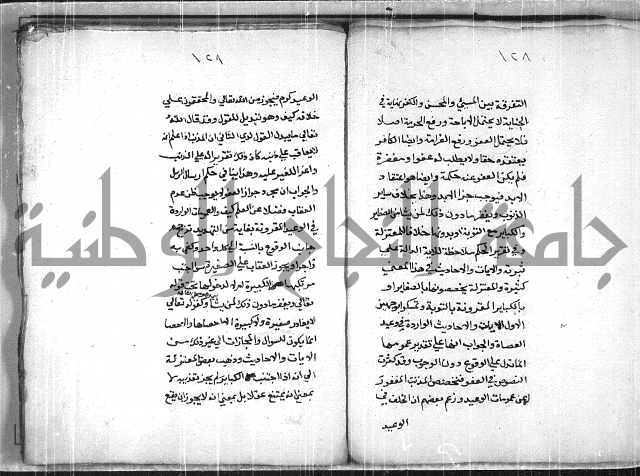 ١٢٨
التفرقة بين المسئ والمحسن والكفر نهاية في
الجناية لا يحتمل الاباحة ورفع الحرمة اصلا
فلا يحتمل العفو ورفع الغرامة وايضا الكافر
يعتقده حقا ولا يطلب له عفوا ومغفرة
فلم يكن العفو عنه حكمة وايضا هو اعتقاد
الابد فيوجب جزا الابد وهذا بخلاف ساير
الذنوب ويغفر ما دون ذلك لمن يشا من الصغاير
والكباير مع التوبة او بدونها خلافا للمعتزلة
وفي تقرير الحكم ملاحظة للاية الدالة على
ثبوته والايات والاحاديث في هذا المعنى
كثيرة والمعتزلة يخصصونها بالصغاير او
بالكباير المقرونة بالتوبة وتمسكوا بوجهين
الاول الايات والاحاديث الواردة في وعيد
العصاة والجواب انها على تقدير عمومها
انما تدل على الوقوع دون الوجوب وقد كثرت
النصوص في العفو فيخصص المذنب المغفور
عن عمومات الوعيد وزعم بعضهم ان الخلف في
الوعيد
١٢٩
الوعيد كرم فيجوز من الله تعالى والمحققون على
خلافه كيف وهو تبديل للقول وقد قال الله
تعالى ما يبدل القول لدي الثاني ان المذنب اذا علم انه
لا يعاقب على ذنبه كان ذلك تقريرا له على الذنب
واغرا للغير عليه وهذا ينافي حكم ارسال الرسل
والجواب ان مجرد جواز العفو لا يوجب ظن عدم
العقاب فضلا عن العلم كيف والعمومات الواردة
في الوعيد المقرونة بغاية من التهديد ترجح
جانب الوقوع بالنسبة الى كل واحد وكفى به
زاجرا ويجوز العقاب على الصغيرة سوا اجتنب
مرتكبها الكبيرة ام لا لدخولها تحت قوله
تعالى ويغفر ما دون ذلك لمن يشا ولقوله تعالى
لا يغادر صغيرة ولا كبيرة الا احصاها والاحصا
انما يكون للسوال والمجازات الى غير ذلك من
الايات والاحاديث وذهب بعض المعتزلة
الى انه اذا اجتنب الكباير لم يجز تعذيبه لا
بمعنى انه يمتنع عقلا بل بمعنى انه لا يجوز ان يقع
جامعة النجاح الوطنية